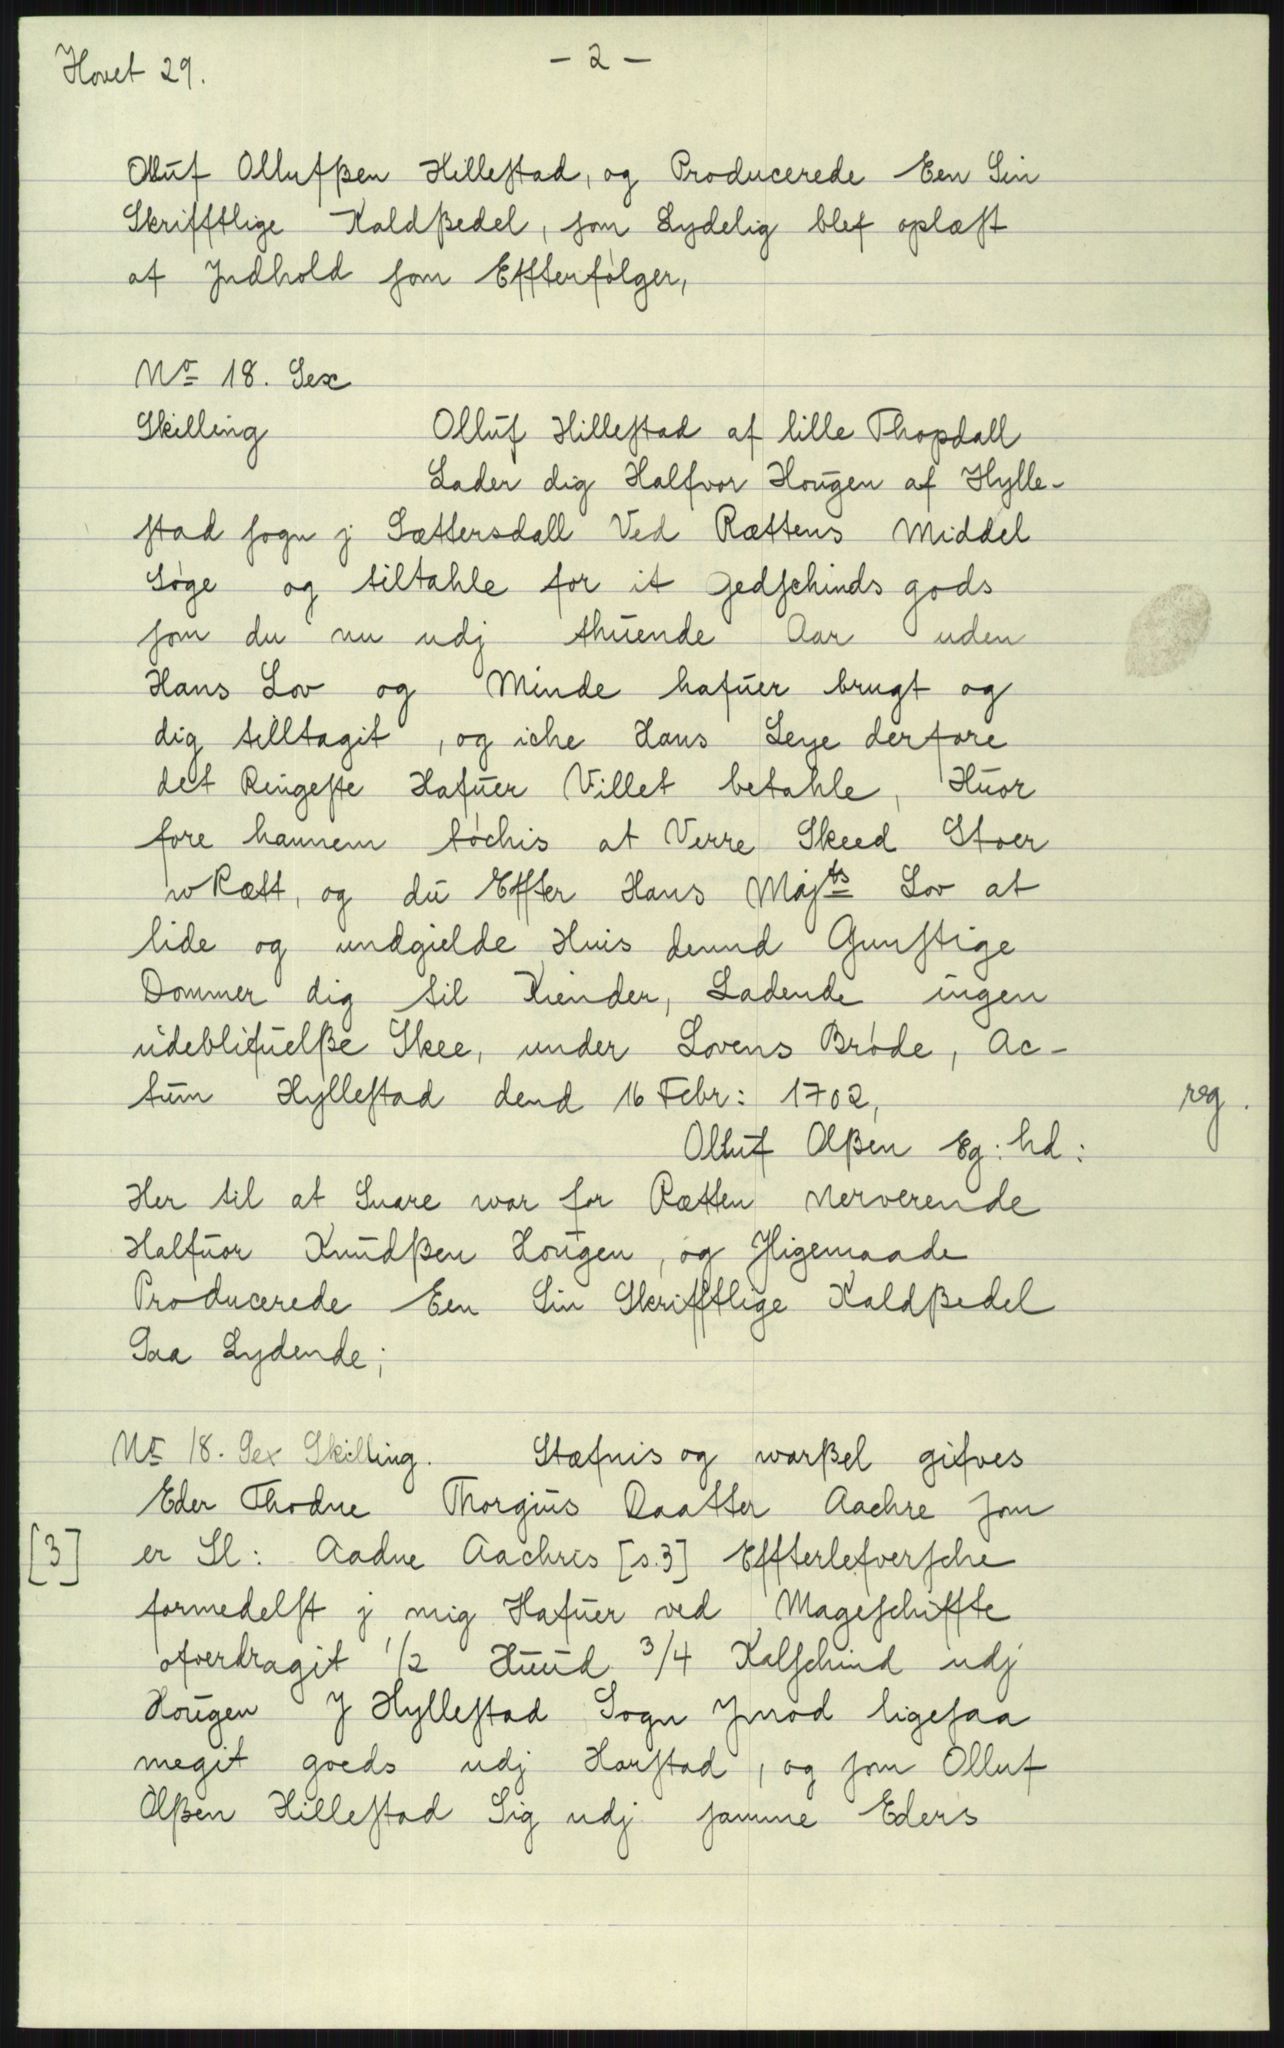 Hovet 29.
- 2 -
Olluf Ollufßen Hillestad, og Producerede Een Sin
Skrifftlige Kaldßedel, som Lydelig blef oplæst
af Jndhold som Effterfølger,
No 18. Sex
Skilling Olluf Hillestad af lille Thopdall
Lader dig Halfvor Hougen af Hylle-
stad sogn j Sættersdall Ved Rættens Middel
Søge og tiltahle for it Gedschinds gods
som du nu udj thuende Aar uden
Hans Lov og Minde hafuer brugt og
dig tilltagit, og iche Hans Leye derfore
det Ringeste Hafuer Villet betahle, Huor
fore hannem tøchis at Verre Skeed Stoer
wRætt, og du Effter Hans Majts Lov at
lide og undgielde Huis dennd Gunstige
Dommer dig til Kiender, Ladende ingen
udeblifuelße Skee, under Lovens Brøde, Ac-
tum Hyllestad dend 16 Febr: 1702,
reg.
Olluf Olßen Eg: hd:
Her til at Suare war for Rætten nerverende
Halfuor Knudßen Hougen, og ligemaade
Producerede Een Sin Skrifftlige Kaldßedel
Saa Lydende;
No 18. Sex Skilling. Stæfnis og warßel gifves
Eder Thodne Thorgius Daatter Aachre som
[3] er Sl: Aadne Aachris [s.3] Effterlefversche
formedelst j mig Hafuer ved Mageschiffte
ofverdragit 1/2 Huud 3/4 Kalfschind udj
Hougen J Hyllestad Sogn Jmod ligesaa
megit goeds udj Harstad, og som Olluf
Olßen Hillestad Sig udj samme Eders